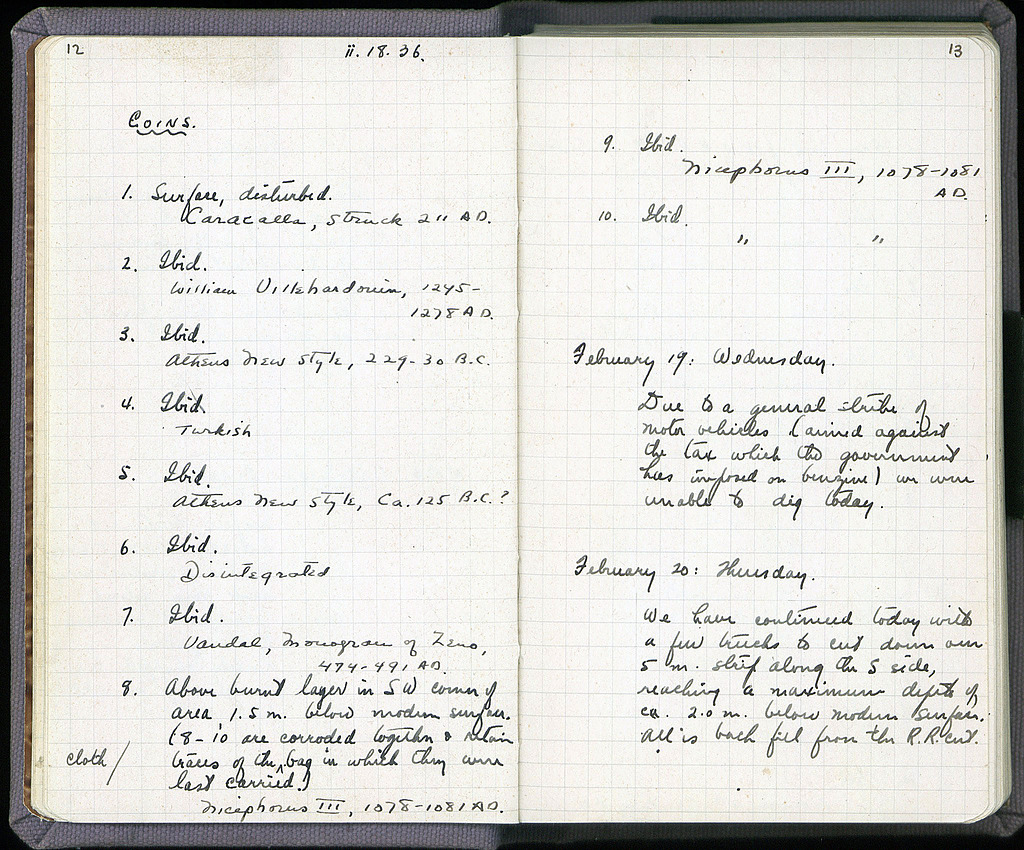 12
ii. 18. 36.
COINS.
1. Surface, disturbed.
Caracalla, struck 211 A.D.
2. Ibid.
William Villehardouin, 1245-
1278 A.D.
3. Ibid.
Athens New Style, 229-30 B.C.
4. Ibid.
Turkish
5. Ibid.
Athens New Style, Ca. 125 B.C.?
6. Ibid.
Disintegrated
7. Ibid.
Vandal, Monogram of Zeno,
474-491 A.D.
8. Above burnt layer in SW corner of
area, 1.5 m. below modern surface.
(8-10 are corroded together & retain
cloth/ traces of the ‸ bag in which they were
last carried.)
Nicephorus III, 1078-1081 A.D.
13
9. Ibid.
Nicephorus III, 1078-1081
A.D.
10. Ibid.
" "
February 19: Wednesday.
Due to a general strike of
motor vehicles (aimed against
the tax which the government
has imposed on benzine) we were
unable to dig today.
February 20: Thursday.
We have continued today with
a few trucks to cut down our
5 m. strip along the S side,
reaching a maximum depth of
ca. 2.0 m. below modern surface.
All is back fill from the R.R. cut.